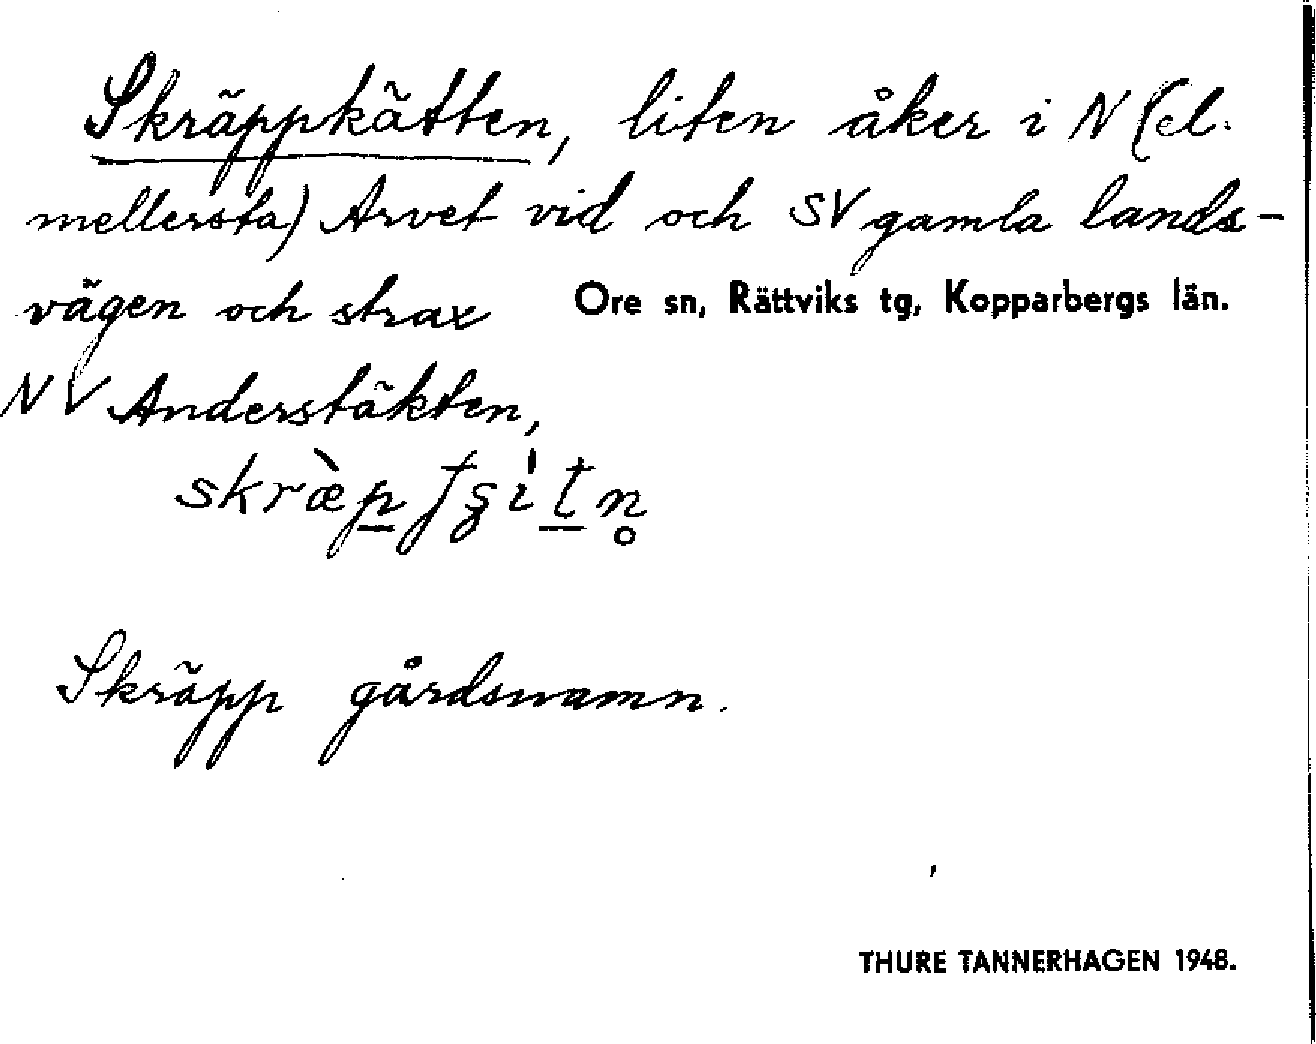 Skräppkätten, liten åker i N (el.
mellersta) Arvet vid och SV gamla lands-
vägen och strax
Ore sn, Rättviks tg, Kopparbergs län.
NV Anderstäkten,
Skräpp gårdsnamn.
THURE TANNERHAGEN 1948.